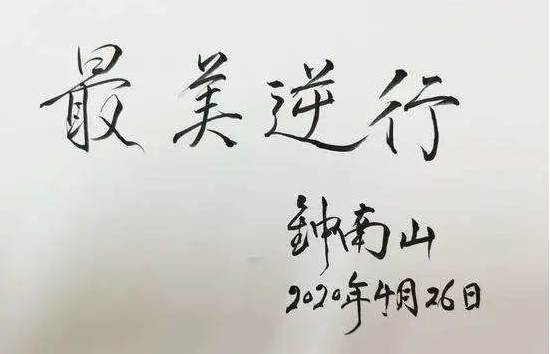 最美逆行
钟南山
2020年4月26日